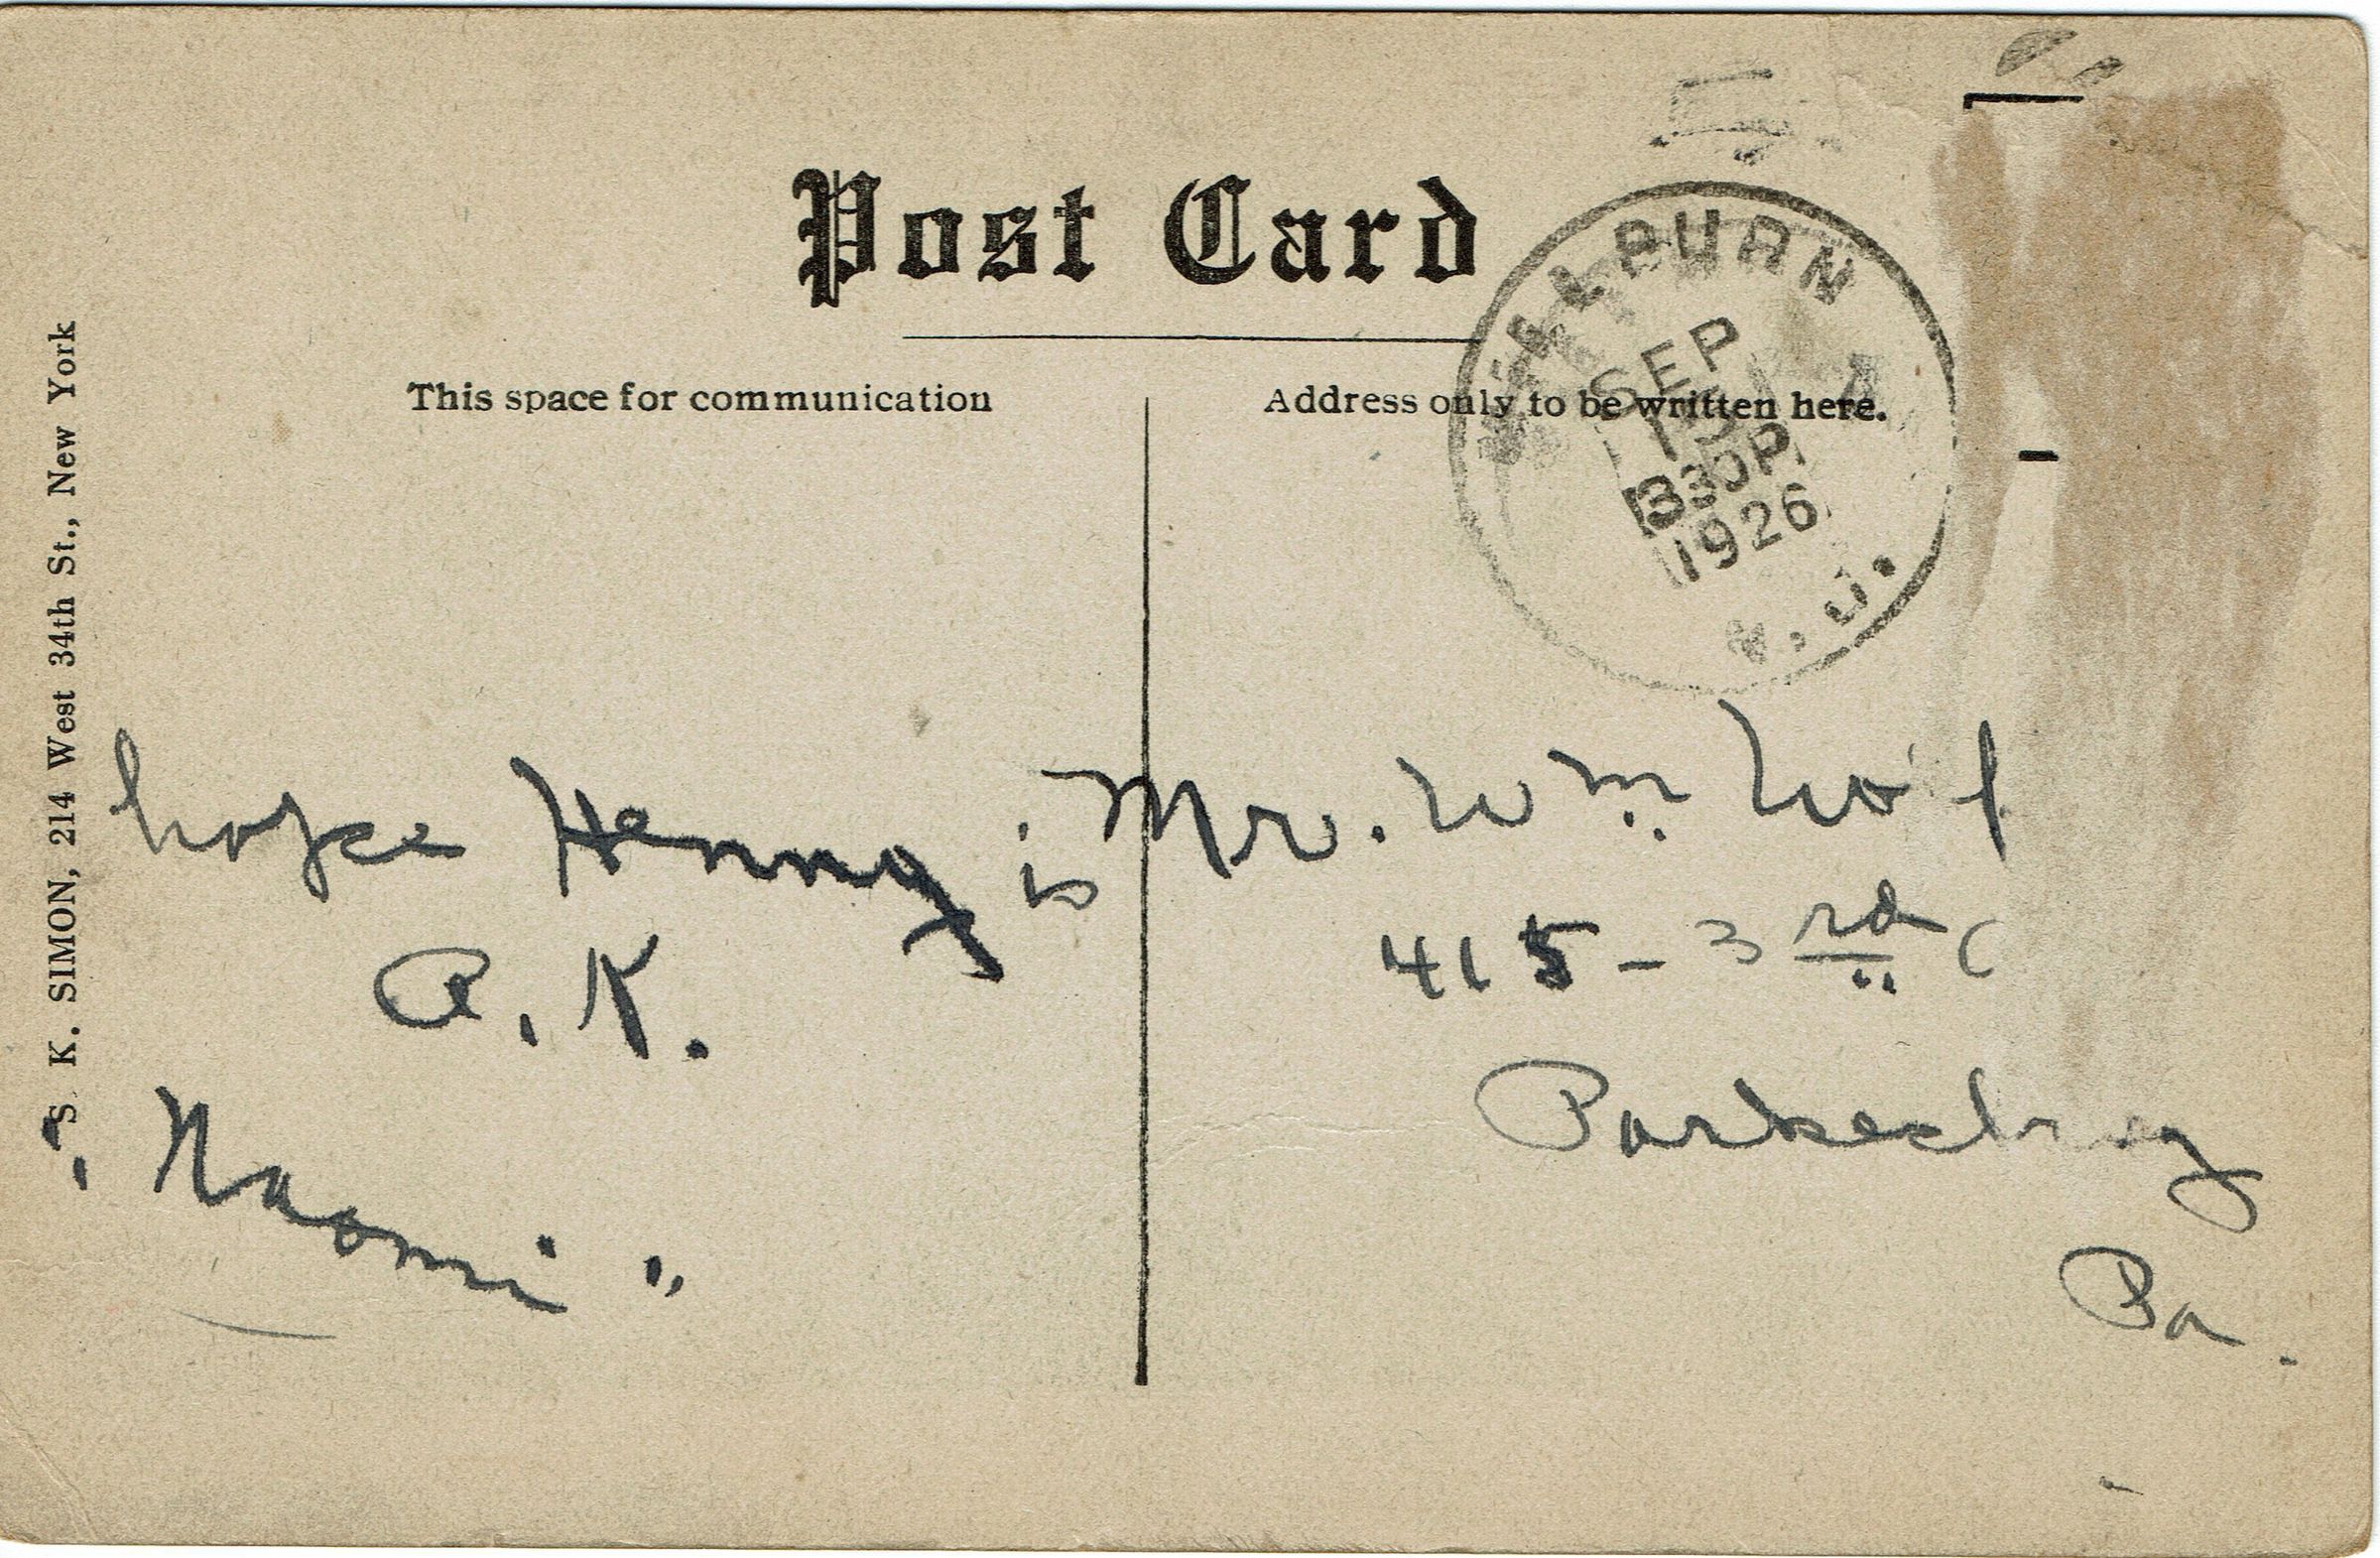 Post Card
This space for communication
Address only to be written here.
S. K. SIMON, 214 West 34th St., New York
SEP
330P
1926
N.J.
hope Henny is
O.K.
"Naomi"
Mr. Wm
415 - 3rd
Parkesburg
Pa.